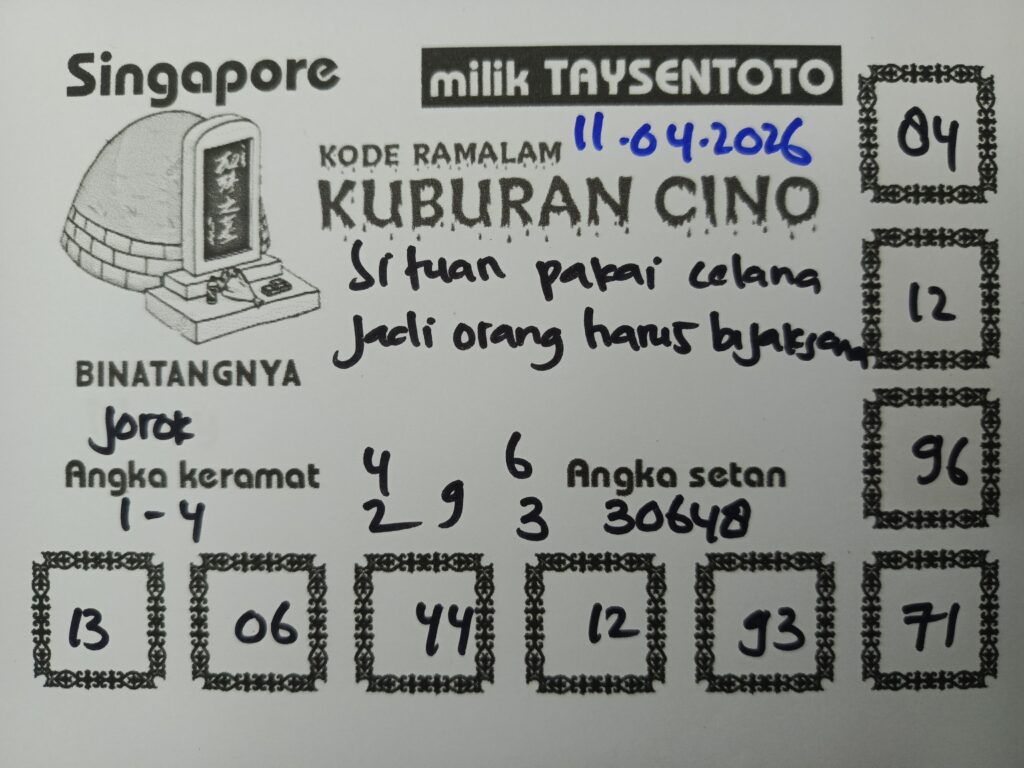 Singapore
milik TAYSENTOTO
KODE RAMALAM 11.04.2026
KUBURAN CINO
Si tuan pakai celana
Jadi orang harus bijaksana
BINATANGNYA
Jorok
Angka keramat
1-4
4 6
2 9 3
Angka setan
30648
04
12
96
13 06 44 12 93 71